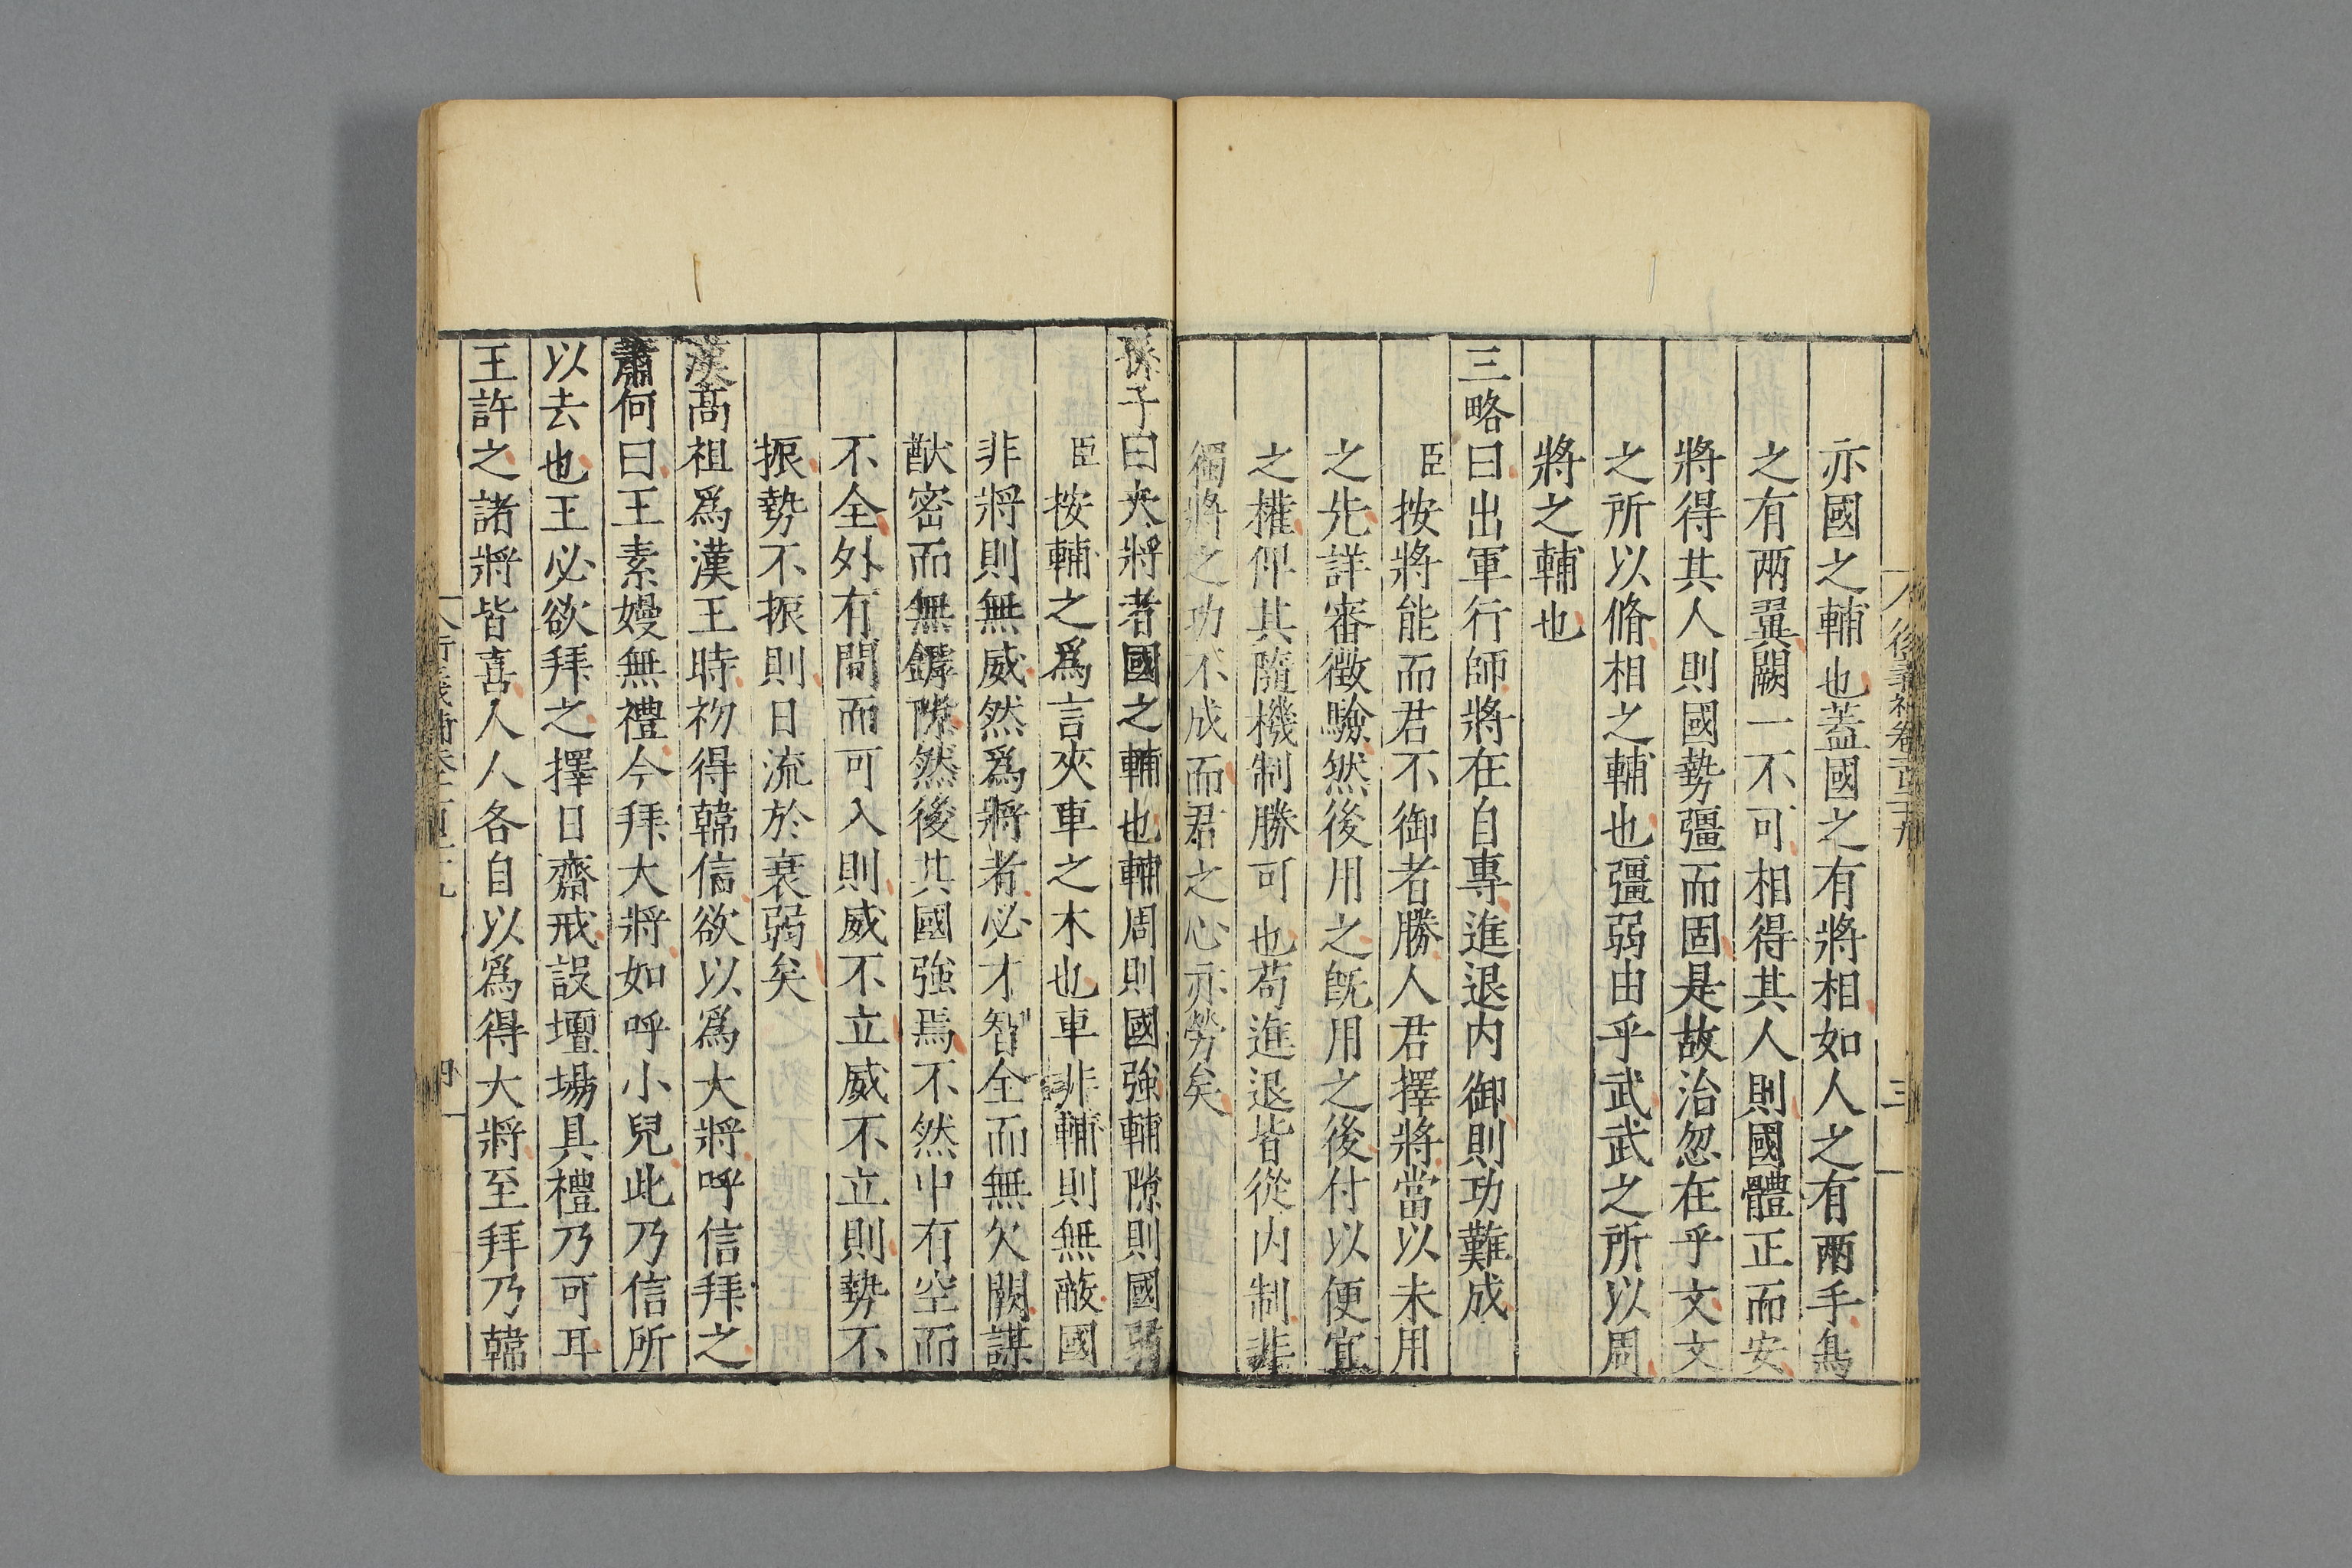 亦國之輔也蓋國之有將相如人之有兩手鳥
之有兩翼闕一不可相得其人則國體正而安
將得其人則國勢彊而固是故治忽在乎文文
之所以脩相之輔也彊弱由乎武武之所以周
將之輔也
三略曰出軍行師將在自專進退內御則功難成
臣按將能而君不御者勝人君擇將當以未用
之先詳審徵驗然後用之旣用之後付以便宜
之權俾其隨機制勝可也苟進退皆從內制非
獨將之功不成而君之心亦勞矣
孫子曰夫將者國之輔也輔周則國強輔隙則國弱
臣按輔之爲言夾車之木也車非輔則無蔽國
非將則無威然爲將者必才智全而無欠闕謀
猷密而無罅隙然後其國強焉不然中有空而
不全外有間而可入則威不立威不立則勢不
振勢不振則日流於衰弱矣
漢高祖爲漢王時初得韓信欲以爲大將呼信拜之
蕭何曰王素嫚無禮今拜大將如呼小兒此乃信所
以去也王必欲拜之擇日齋戒設壇場具禮乃可耳
王許之諸將皆喜人人各自以爲得大將至拜乃韓